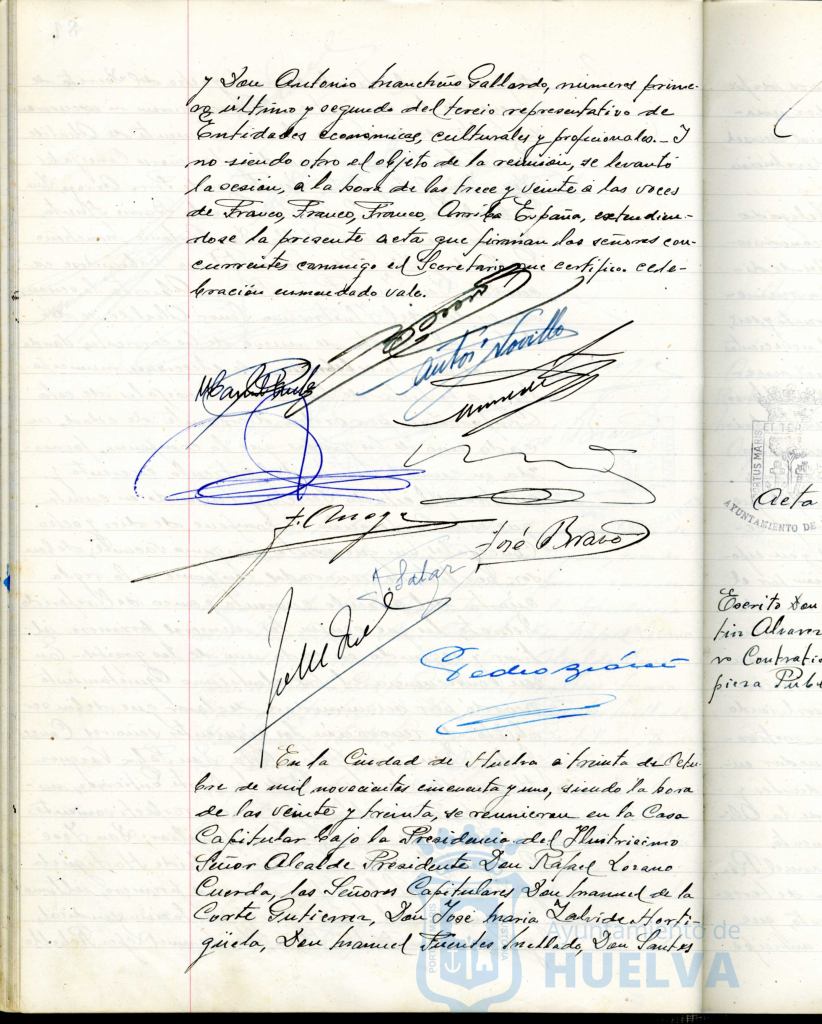 y Don Antonio Mancheño Gallardo, números prime-
ro último y segundo del tercio representativo de
Entidades económicas, culturales y profecionales.- Y
no siendo otro el objeto de la reunión, se levantó
la sesión, a la hora de las trece y veinte a las voces
de Franco, Franco, Franco, Arriba España, extendien-
dose la presente acta que firman los señores con-
currentes conmigo el Secretario que certifico. cele-
bración enmendado vale.
J. Salar
José Bravo
En la Ciudad de Huelva a treinta de Octu-
bre de mil novecientos cincuenta y uno, siendo la hora
de las veinte y treinta, se reunieron en la Casa
Capitular bajo la Presidencia del Ilustrisimo
Señor Alcalde Presidente Don Rafael Lozano
Cuerda, los Señores Capitulares Don Manuel de la
Corte Gutierrez, Don José Maria Zalvide Horti-
güela, Don Manuel Fuentes Mellado, Don Santos
Ayuntamiento de
HUELVA
PORTUS MARIS
ET TER
AYUNTAMIENTO DE
Acta
Escrito Don
tin Alvarez
vo Contrati
pieza Pub